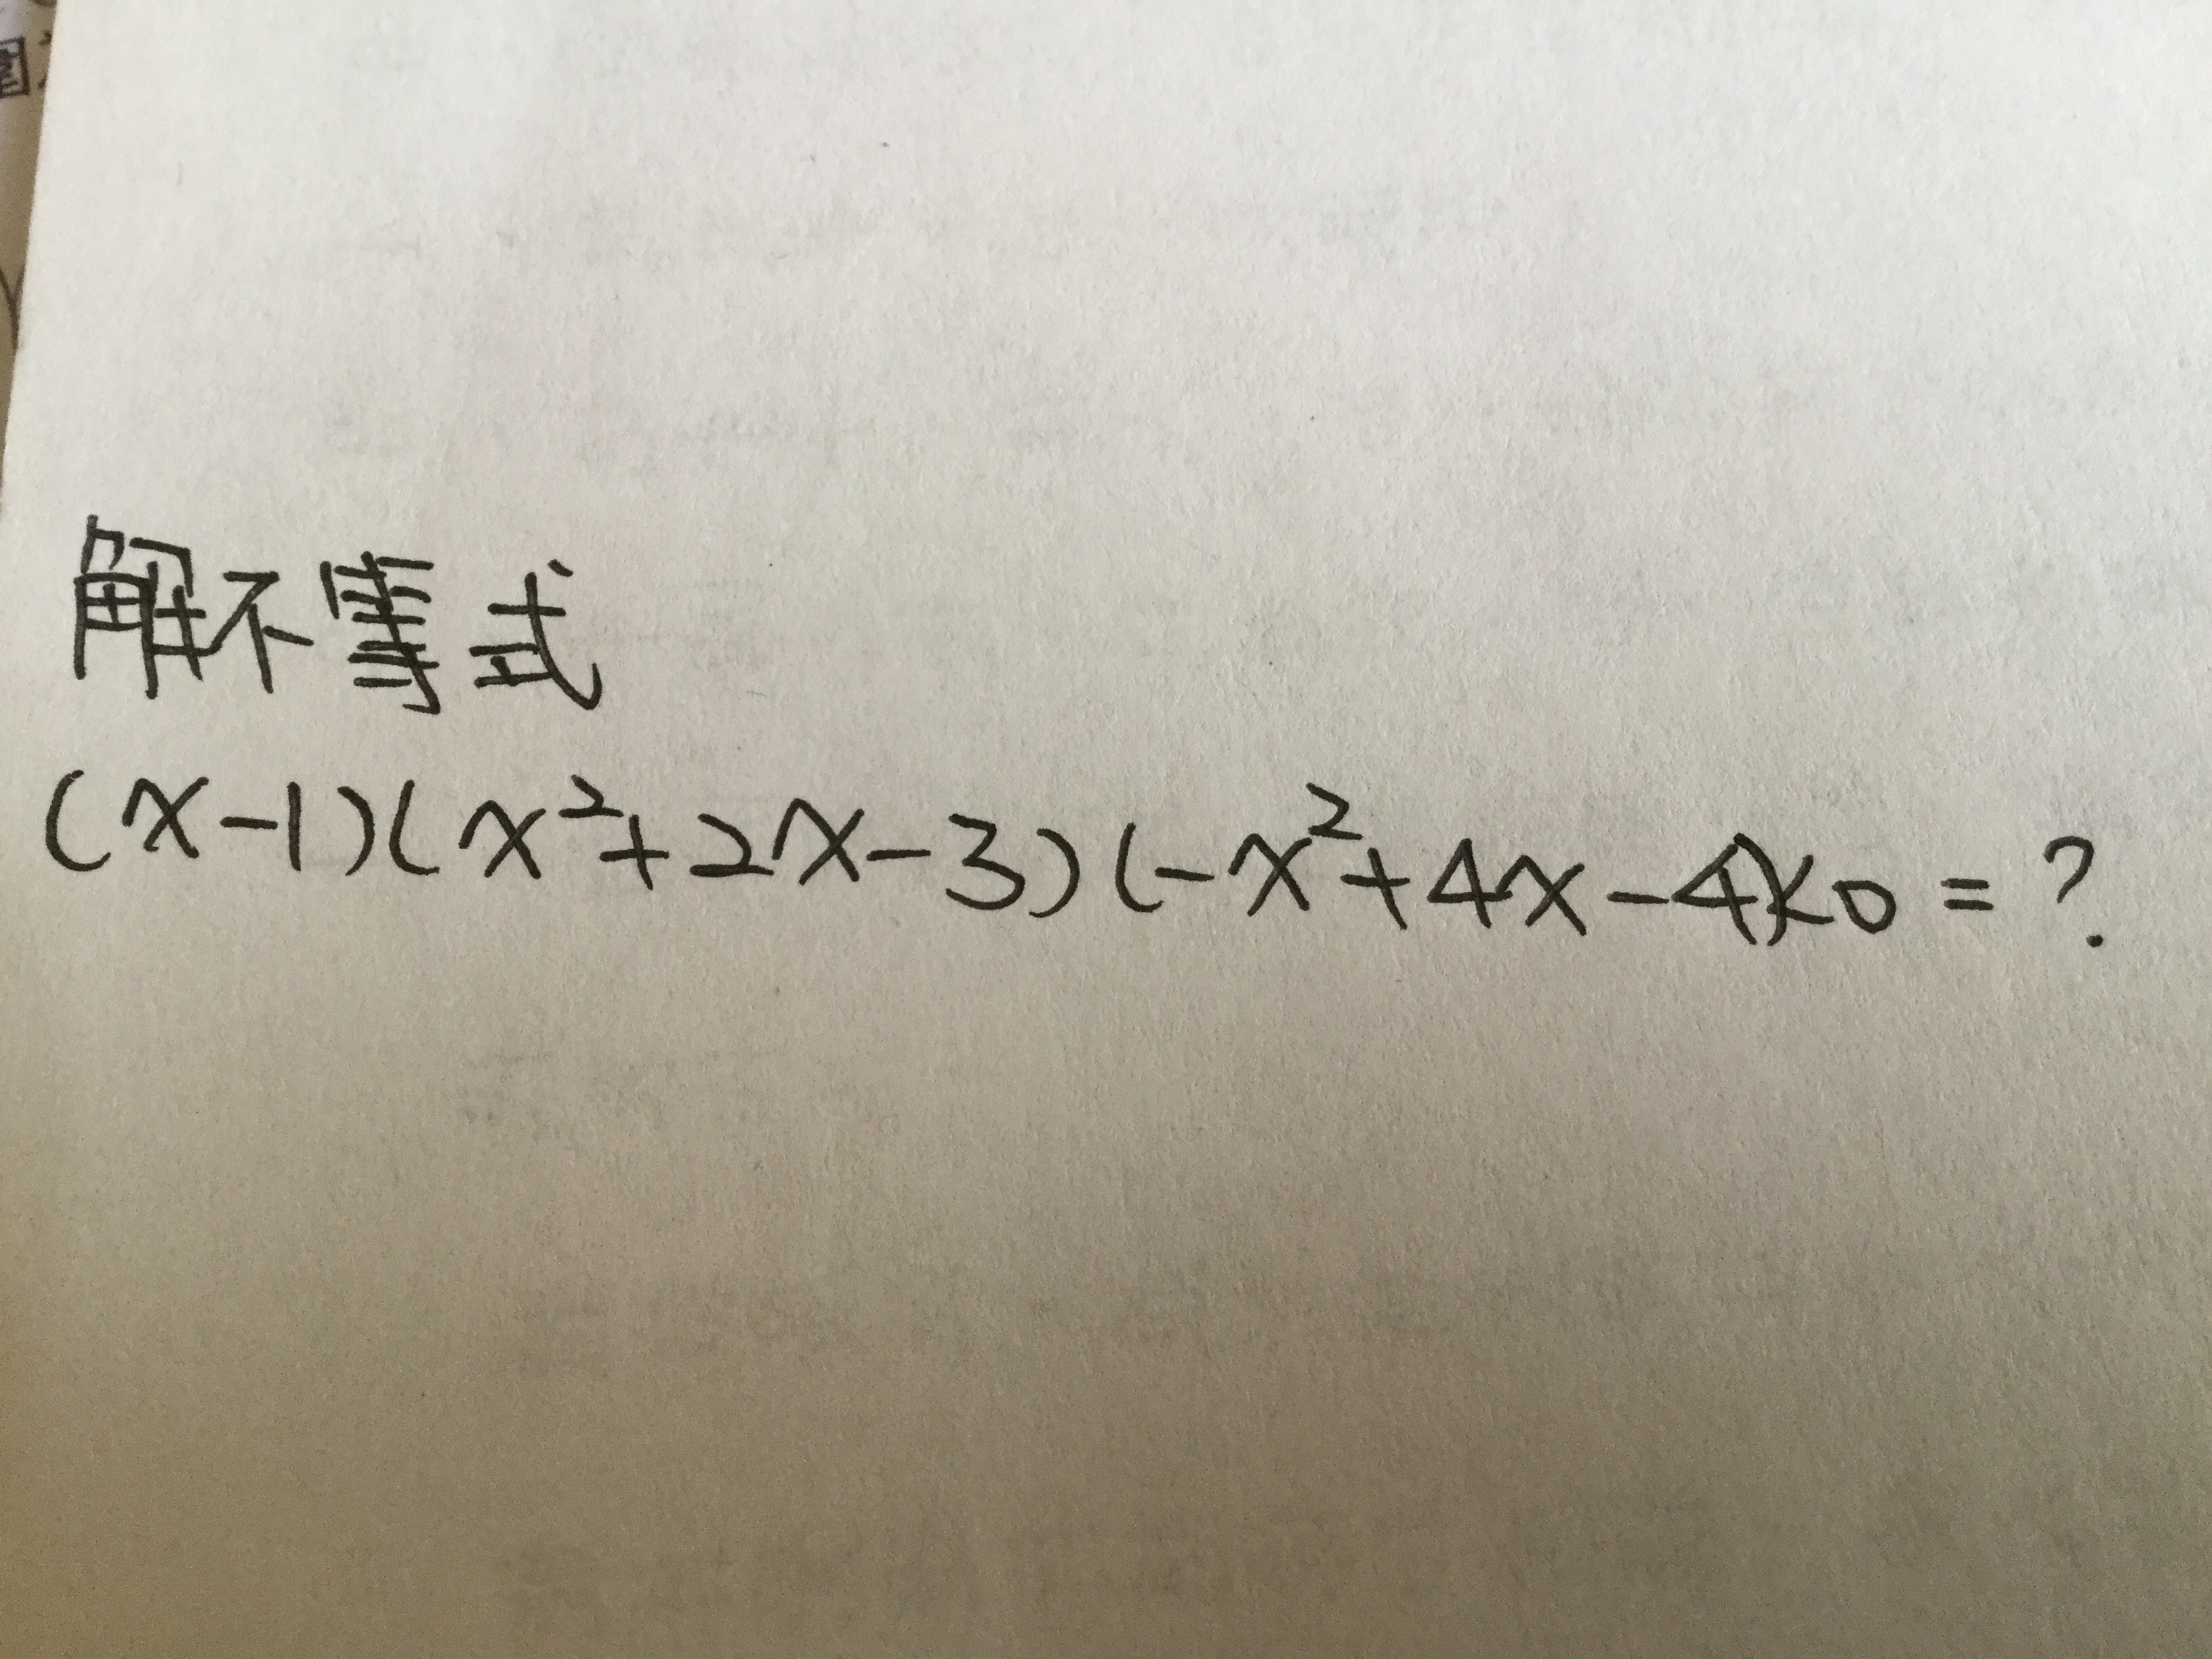 解不等式
(x-1)(x²+2x-3)(-x²+4x-4)<0=?